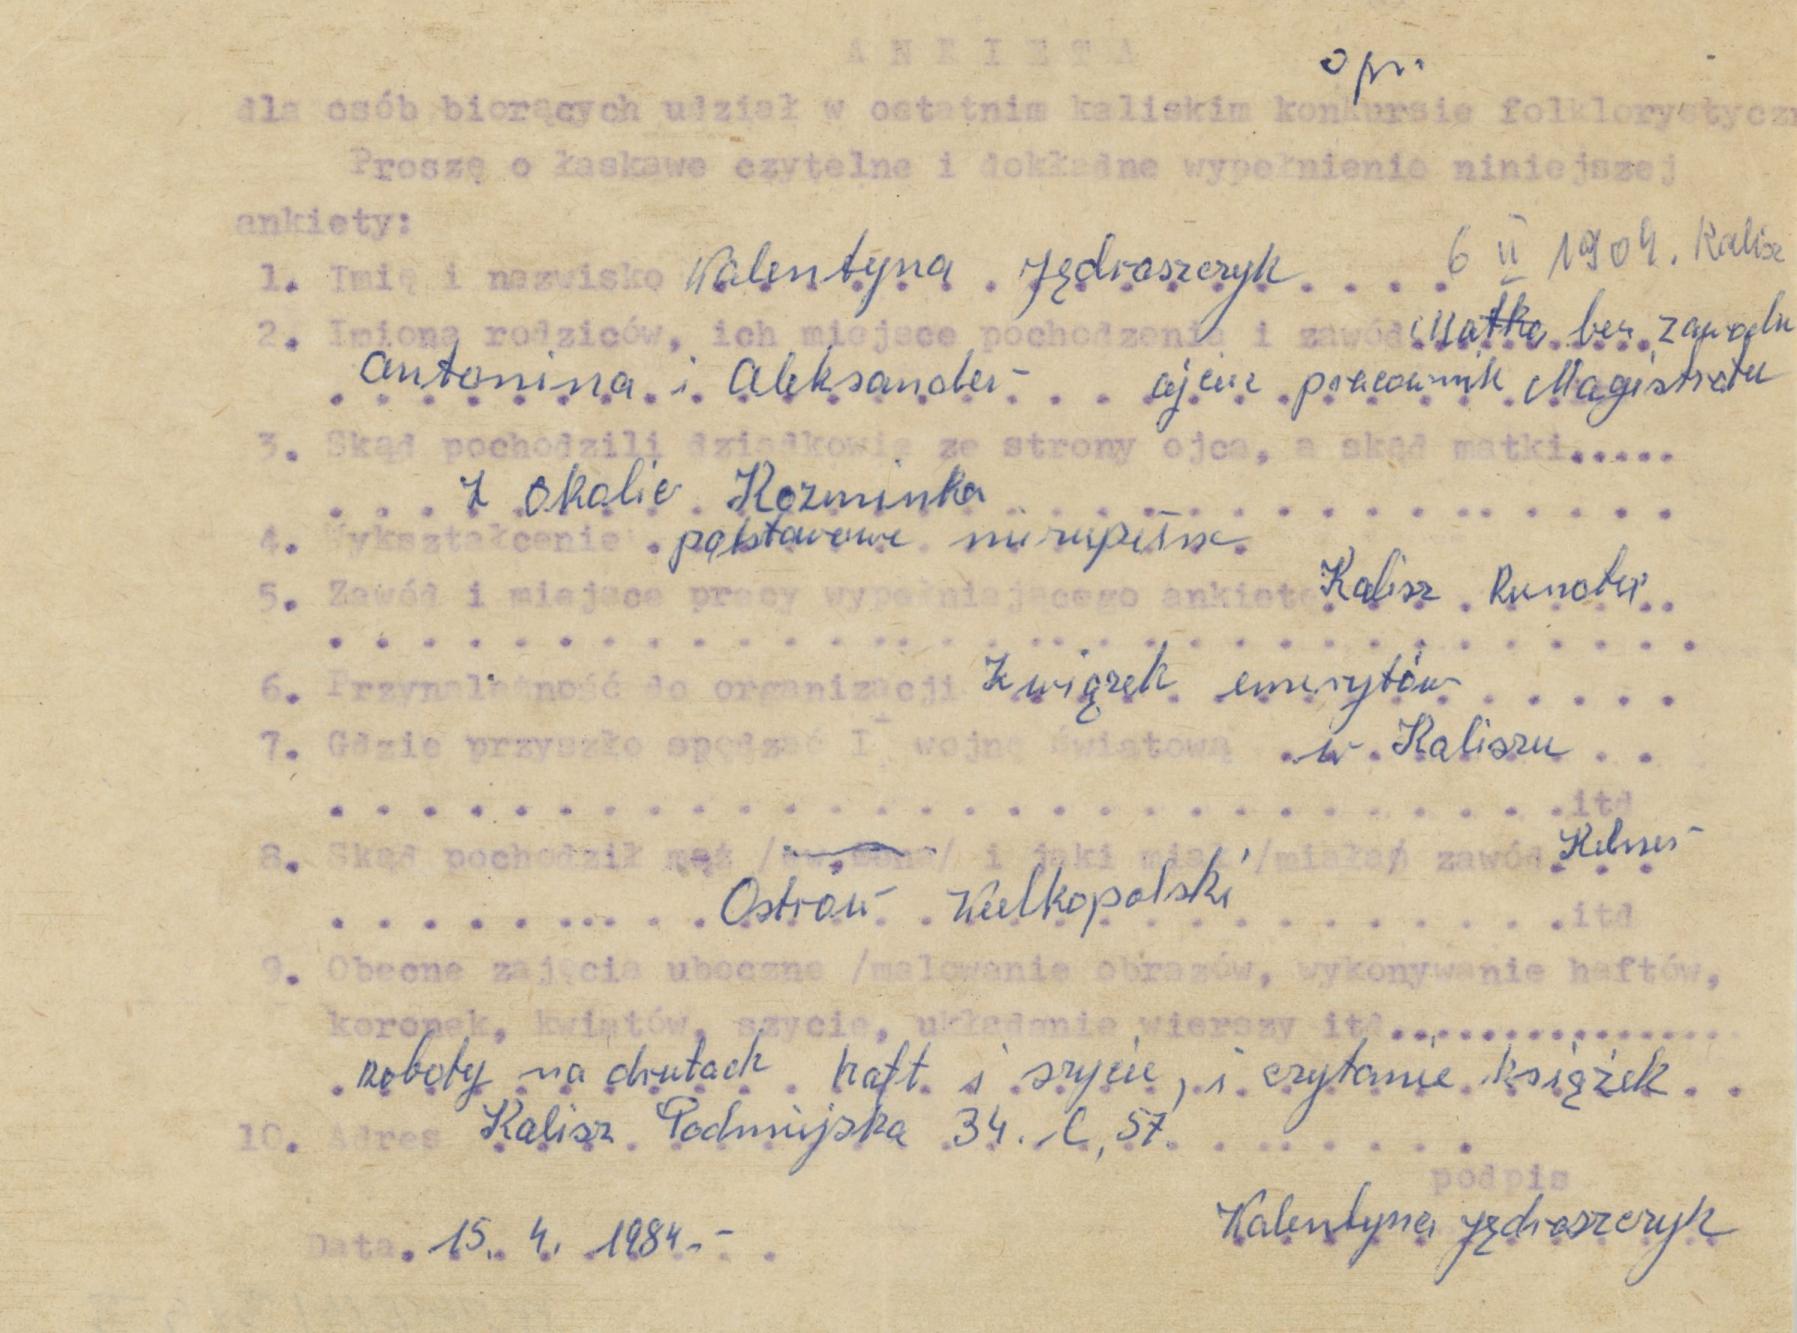 ANKIETA
opr.
dla osób biorących udział w ostatnim kaliskim konkursie folklorystyczn
Proszę o łaskawe czytelne i dokładne wypełnienie niniejszej
ankiety:
1. Imię i nazwisko Walentyna Jędraszczyk . . . . 6 II 1904. Kalisz
2. Imiona rodziców, ich miejsce pochodzenia i zawód Matka bez zawodu
Antonina i Aleksander - ojciec pracownik Magistratu
3. Skąd pochodzili dziadkowie ze strony ojca, a skąd matki.....
Z okolic Kozminka
4. Wykształcenie podstawowe niezupełne
5. Zawód i miejsce pracy wypełniającego ankietę Kalisz Runotex
6. Przynależność do organizacji Związek emerytów
7. Gdzie przyszło spędzać I wojnę światową w Kaliszu
itd
8. Skąd pochodził mąż / / i jaki miał /miała/ zawód Kelner -
Ostrów Wielkopolski itd
9. Obecne zajęcia uboczne /malowanie obrazów, wykonywanie haftów,
koronek, kwiatów, szycie, układanie wierszy itd................
roboty na drutach haft i szycie, i czytanie książek
10. Adres Kalisz Podmiejska 34. C, 57
podpis
Walentyna Jędraszczyk
Data. 15. 4. 1984. -